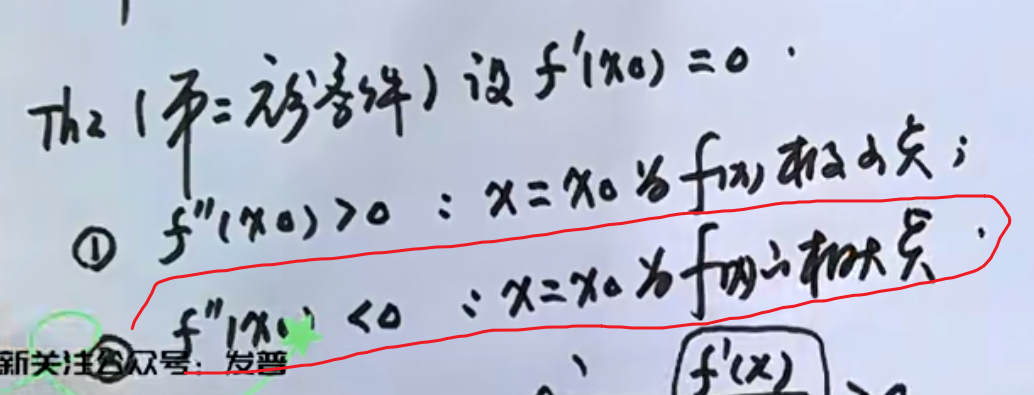 Th2 (第二充分条件) 设 f'(x0) = 0 .
① f''(x0) > 0 : x = x0 为 f(x) 极小点 ;
② f''(x0) < 0 : x = x0 为 f(x) 的极大点 .
新关注公众号: 发普
f'(x)